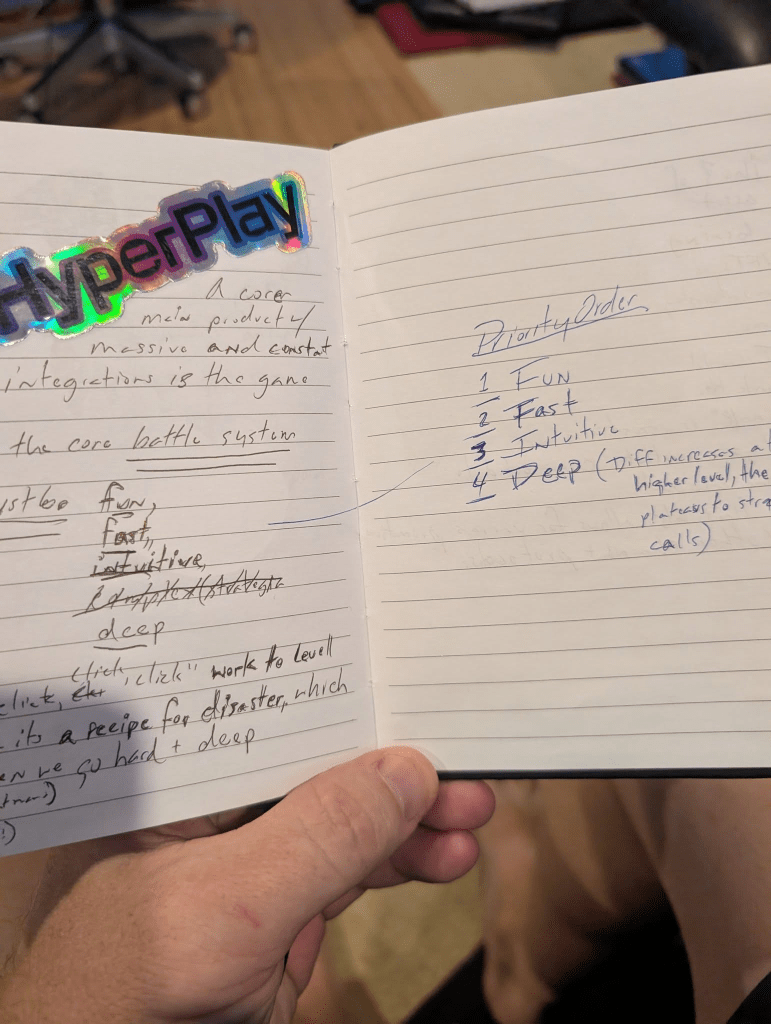 HyperPlay
A corer
main product w/
massive and constat
integrations is the game
the core battle system
must be fun,
fast,
intuitive,
complex/strategic
deep
click, click, click" work to level
its a recipe for disaster, which
we go hard + deep
Priority Order
1 Fun
2 Fast
3 Intuitive
4 Deep (Diff increases at
higher level, the
plateaus to stra
calls)